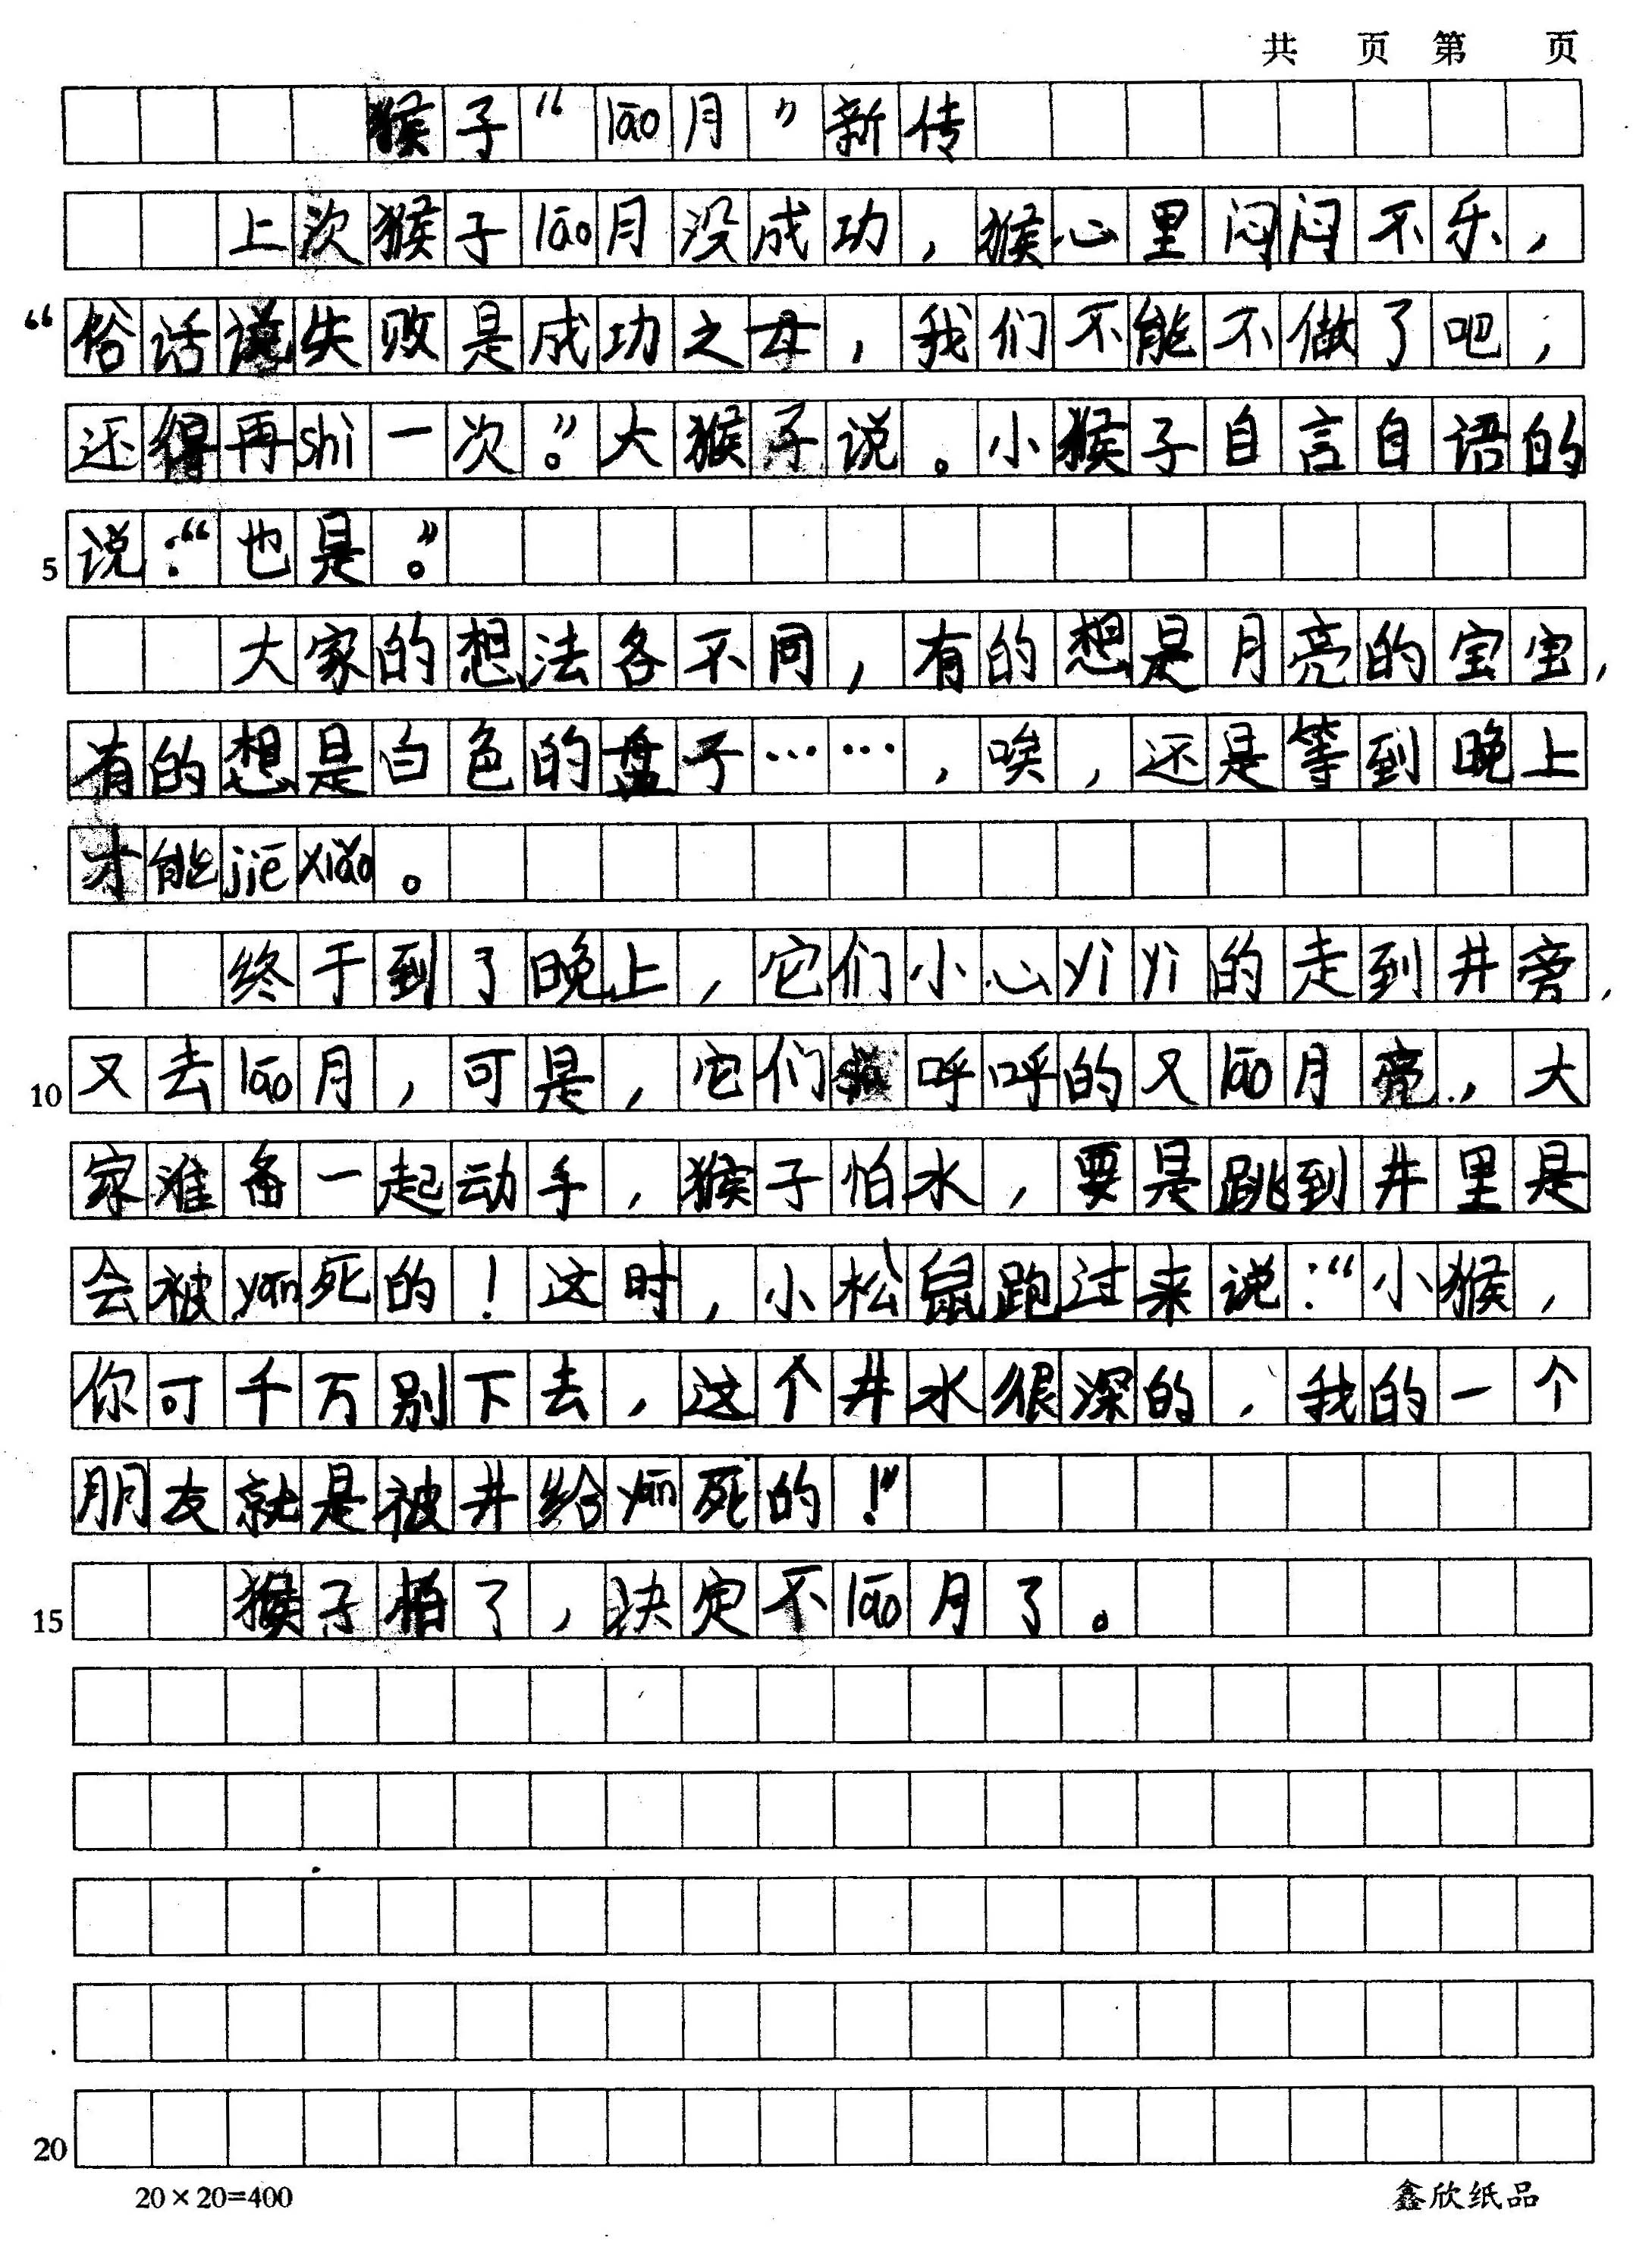 共 页 第 页
猴子“lāo月”新传
上次猴子lāo月没成功，猴心里闷闷不乐，
“俗话说失败是成功之母，我们不能不做了吧，
还得再shì一次。”大猴子说。小猴子自言自语的
5 说：“也是。”
大家的想法各不同，有的想是月亮的宝宝，
有的想是白色的盘子……，唉，还是等到晚上
才能jiē xiǎo。
终于到了晚上，它们小心yì yì的走到井旁，
10 又去lāo月，可是，它们呼呼的又lāo月亮，大
家准备一起动手，猴子怕水，要是跳到井里是
会被yān死的！这时，小松鼠跑过来说：“小猴，
你可千万别下去，这个井水很深的，我的一个
朋友就是被井给yān死的！”
15 猴子怕了，决定不lāo月了。
20
20×20=400 鑫欣纸品